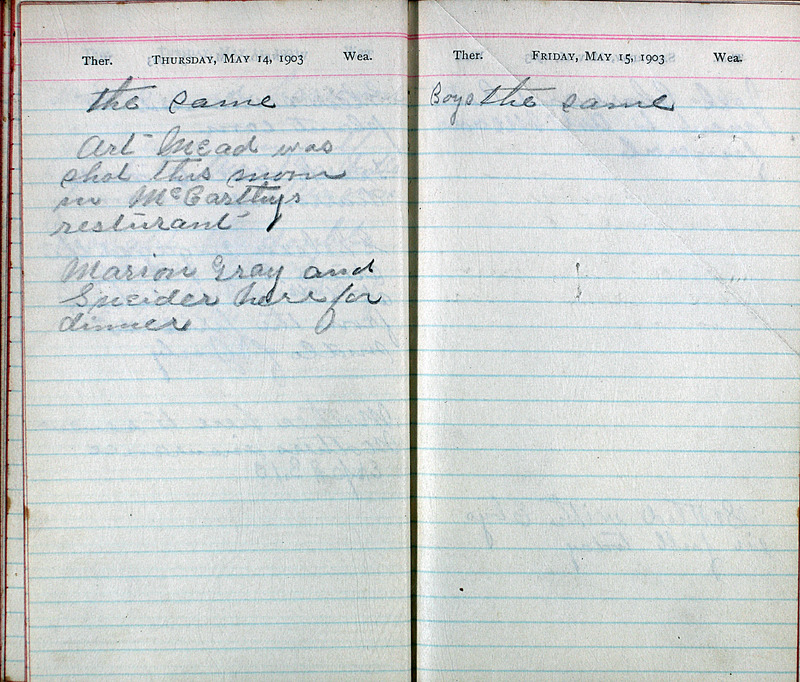 Ther. THURSDAY, MAY 14, 1903 Wea.
the same
Art Mead was
shot this morn
in McCarthys
resturant
Marion Gray and
Sneider here for
dinner
Ther. FRIDAY, MAY 15, 1903 Wea.
Boys the same